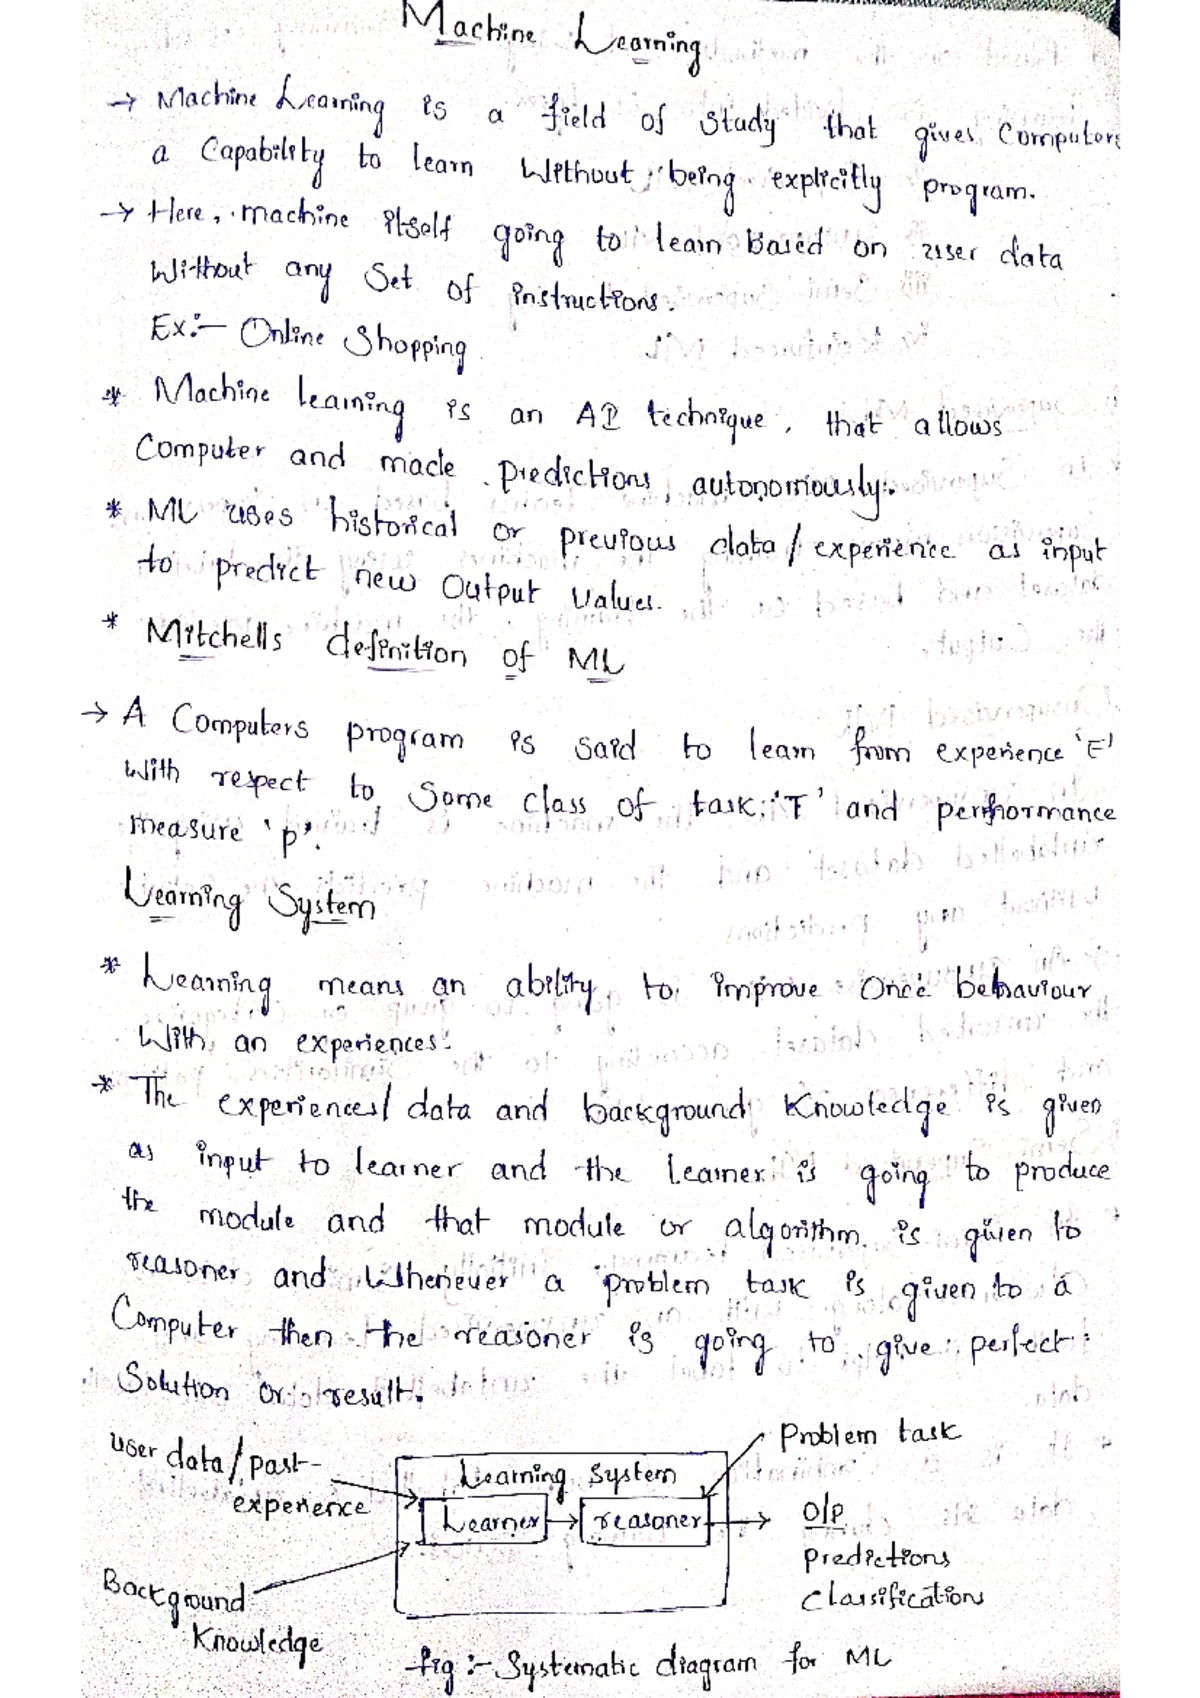 Machine Learning
→ Machine Learning is a field of study that gives Computers
a Capability to learn Without being explicitly program.
→ Here, machine itself going to learn Based on user data
Without any Set of instructions.
Ex:- Online Shopping
* Machine learning is an AI technique, that allows
Computer and made predictions, autonomously.
* ML uses historical or previous data/experience as input
to predict new Output Values.
* Mitchells definition of ML
→ A Computers program is said to learn from experience 'E'
With respect to Some class of task 'T' and perfhormance
measure 'p'.
Learning System
* Learning means an ability to improve Once behaviour
With an experiences.
* The experiences/data and background Knowledge is given
as input to learner and the Learner is going to produce
the module and that module or algorithm is given to
reasoner and Whenever a problem task is given to a
Computer then the reasoner is going to give perfect
Solution or result.
Problem task
user data/past-
experience
Learning System
Learner
reasoner
O/P
predictions
Classifications
Background
Knowledge
fig:- Systematic diagram for ML